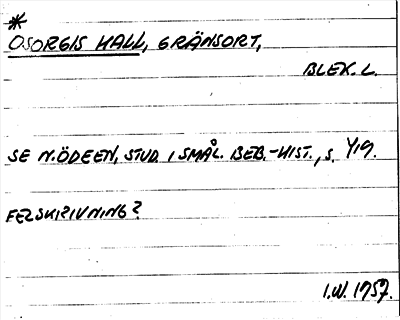 *
OSORGIS HALL, GRÄNSORT,
BLEK. L.
SE N. ÖDEEN, STUD. I SMÅL. BEB.-HIST., S. 419.
FELSKRIVNING?
I.W. 1957.